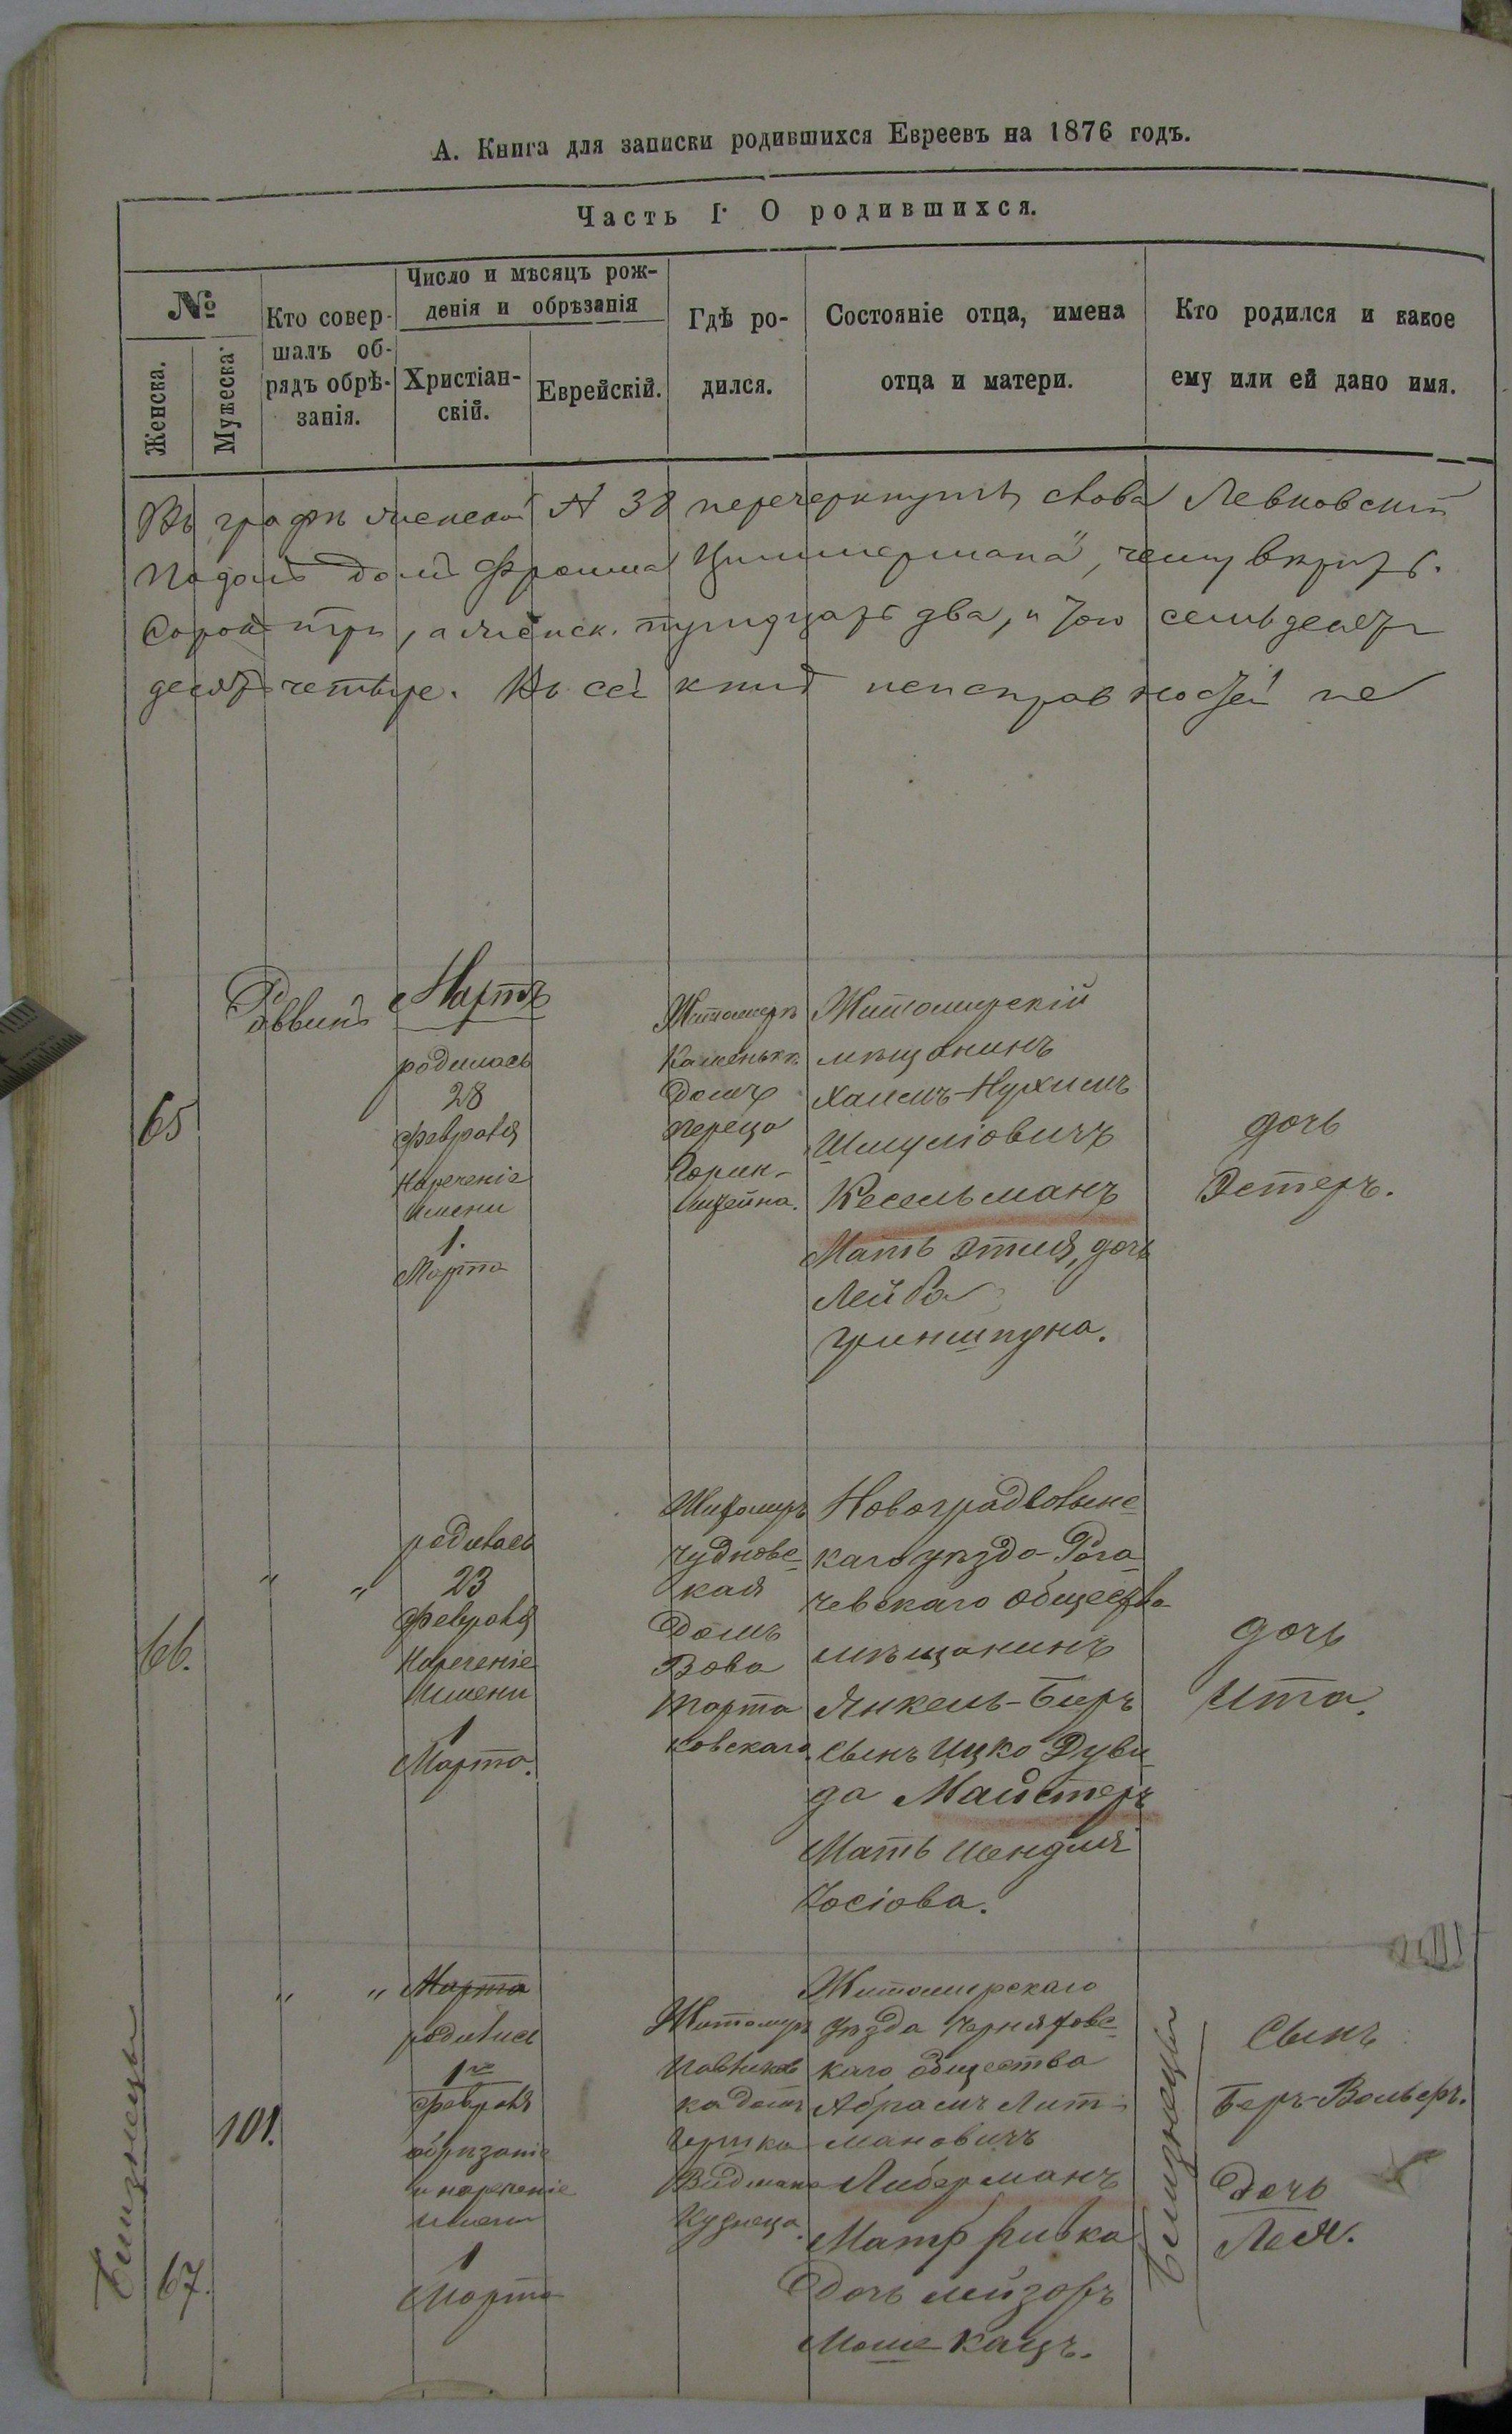 А. Книга для записки родившихся Евреевъ на 1876 годъ.
Часть I. О родившихся.
№
Женска.
Мужеска.
Кто совер-
шалъ об-
рядъ обрѣ-
занія.
Число и мѣсяцъ рож-
денія и обрѣзанія
Христіан-
скій.
Еврейскій.
Гдѣ ро-
дился.
Состояніе отца, имена
отца и матери.
Кто родился и какое
ему или ей дано имя.
Въ графѣ женской № 38 перечеркнуты слова Левковскій
домъ Фроима Циммермана", чему
Сорокъ три, а женск. тридцать два, и того семьдесят
десят четыре. Въ сей книгѣ неисправностей не
65
Раввинъ
Мартъ
родилась
28
Февраля
Нареченіе
Имени
1.
Марта
Житомиръ
Каменька
Домъ
Переца
Горен-
штейна.
Житомирскій
мѣщанинъ
Хаимъ-Нухимъ
Шмуліовичъ
Кесельманъ
Мать Этля, дочь
Лейба
Гриншпуна.
дочь
Эстеръ.
66.
" "
родилась
23
Февраля
Нареченіе
Имени
1
Марта.
Житомиръ
Чудновс-
кая
Домъ
Вова
Марта
ковскаго.
Новоградволынс-
каго уѣзда Рога-
чевскаго общества
мѣщанинъ
Янкель-Беръ
сынъ Ицко Дуви-
да Майстеръ
Мать Шендля
Іосіова.
дочь
Ита.
Близнецы
67.
101.
" "
Марта
родились
1го
Февраля
обрѣзаніе
и нареченіе
имени
1
Марта
Житомиръ
ка домъ
Гершка
Видмана
Кузнеца.
Житомирскаго
уѣзда Черняховс-
каго общества
Абрамъ Лит-
мановичъ
Либерманъ
Мать Ривка
Дочь Лейзоръ
Моше Кацъ.
Близнецы
Сынъ
Беръ-Вольфъ.
Дочь
Лея.